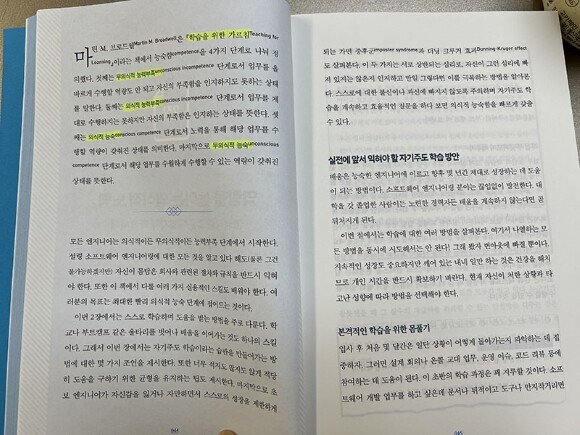 마틴 M. 브로드웰Martin M. Broadwell은 『학습을 위한 가르침Teaching for
Learning』이라는 책에서 능숙함competence을 4가지 단계로 나눠 정
의했다. 첫째는 무의식적 능력부족unconscious incompetence 단계로서 업무를 올
바르게 수행할 역량도 안 되고 자신의 부족함을 인지하지도 못하는 상태
를 말한다. 둘째는 의식적 능력부족conscious incompetence 단계로서 업무를 제
대로 수행하지는 못하지만 자신의 부족함은 인지하는 상태를 뜻한다. 셋
째는 의식적 능숙conscious competence 단계로서 노력을 통해 해당 업무를 수
행할 역량이 갖춰진 상태를 의미한다. 마지막으로 무의식적 능숙unconscious
competence 단계로서 해당 업무를 수월하게 수행할 수 있는 역량이 갖춰진
상태를 뜻한다.
모든 엔지니어는 의식적이든 무의식적이든 능력부족 단계에서 시작한다.
설령 소프트웨어 엔지니어링에 대한 모든 것을 알고 있다 해도(물론 그건
불가능하겠지만) 자신이 몸담은 회사와 관련된 절차와 규칙을 반드시 익혀
야 한다. 또한 이 책에서 다룰 여러 가지 실용적인 스킬도 배워야 한다. 여
러분의 목표는 최대한 빨리 의식적 능숙 단계에 접어드는 것이다.
이번 2장에서는 스스로 학습하며 도움을 받는 방법을 주로 다룬다. 학
교나 부트캠프 같은 울타리를 벗어나 배움을 이어가는 것도 하나의 스킬
이다. 그래서 이번 장에서는 자기주도 학습이라는 습관을 만들어가는 방
법에 대한 몇 가지 조언을 제시한다. 또한 너무 적지도 많지도 않게 적당
히 도움을 구하기 위한 균형을 유지하는 팁도 제시한다. 마지막으로 초
보 엔지니어가 자신감을 잃거나 자만하면서 스스로의 성장을 제한하게
044
되는 가면 증후군imposter syndrome과 더닝 크루거 효과Dunning-Kruger effect
도 살펴본다. 이 두 가지는 서로 상반되는 심리로, 자신이 그런 심리에 빠
져 있지는 않은지 인지하고 만일 그렇다면 이를 극복하는 방법을 알아본
다. 스스로에 대한 불신이나 자신에 빠지지 않도록 주의하며 자기주도 학
습을 계속하고 효율적인 질문을 하다 보면 의식적 능숙함을 빠르게 갖출
수 있다.
실전에 앞서 익혀야 할 자기주도 학습 방안
배움은 능숙한 엔지니어에 이르고 향후 몇 년간 제대로 성장하는 데 도움
이 되는 방법이다. 소프트웨어 엔지니어링 분야는 끊임없이 발전한다. 대
학을 갓 졸업한 사람이든 노련한 경력자든 배움을 계속하지 않는다면 곧
뒤처지게 된다.
이번 절에서는 학습에 대한 여러 방법을 살펴본다. 여기서 나열하는 모
든 방법을 동시에 시도해서는 안 된다. 그래 봤자 번아웃에 빠질 뿐이다.
지속적인 성장도 중요하지만 깨어 있는 내내 일만 하는 것은 건강을 해치
므로 개인 시간을 반드시 확보하기 바란다. 현재 자신이 처한 상황과 타
고난 성향에 따라 방법을 선택해야 한다.
본격적인 학습을 위한 몸풀기
입사 후 처음 몇 달간은 일단 상황이 어떻게 돌아가는지 파악하는 데 집
중하자. 그러면 설계 회의나 온콜 교대 업무, 운영 이슈, 코드 리뷰 등에
참여하는 데 도움이 된다. 이 초반의 학습 과정은 꽤 겨루할 것이다. 소프
트웨어 개발 업무를 하고 싶은데 문서나 뒤적이고 도구나 만지작거리면
045